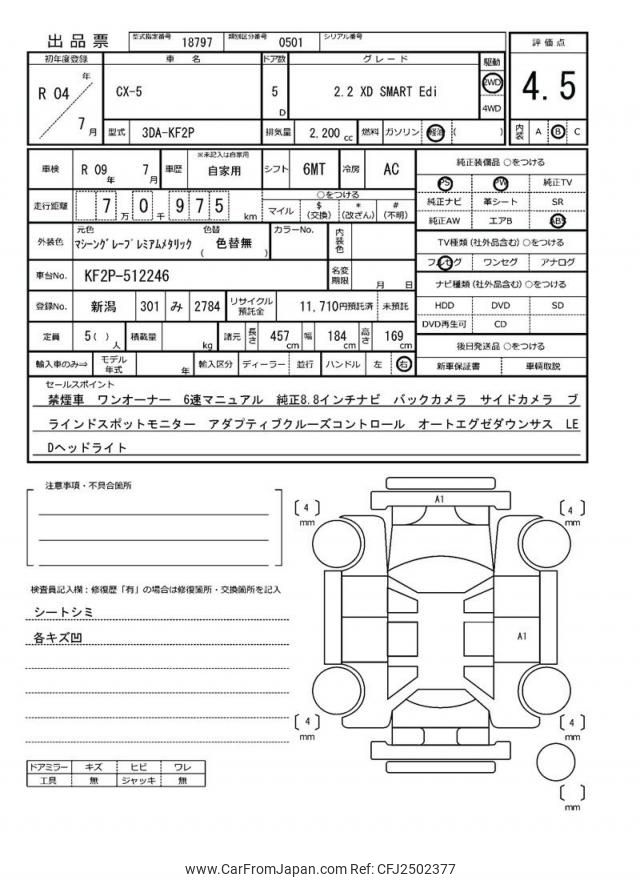 出品票 型式指定番号 18797 類別区分番号 0501 シリアル番号
初年度登録 車名 ドア数 グレード 駆動 評価点
R 04 年 7 月 CX-5 5 D 2.2 XD SMART Edi 2WD 4WD 4.5
型式 3DA-KF2P 排気量 2,200 cc 燃料 ガソリン 軽油 ( ) 内装 A B C
車検 R 09 年 7 月 車歴 ※未記入は自家用 自家用 シフト 6MT 冷房 AC
純正装備品 ○をつける
PS PW 純正TV
純正ナビ 革シート SR
純正AW エアB ABS
走行距離 7 万 0 千 9 7 5 km ○をつける
マイル $(交換) *(改ざん) #(不明)
TV種類(社外品含む)○をつける
フルセグ ワンセグ アナログ
外装色 元色 マシーングレープレミアムメタリック 色替 ( 色替無 ) カラーNo. 内装色
車台No. KF2P-512246 名変期限 月 日
ナビ種類(社外品含む)○をつける
HDD DVD SD
DVD再生可 CD
登録No. 新潟 301 み 2784 リサイクル預託金 11,710円預託済 未預託
定員 5( ) 人 積載量 kg 諸元 長さ 457 cm 幅 184 cm 高さ 169 cm
後日発送品 ○をつける
新車保証書 車輌取説
輸入車のみ⇒ モデル年式 年 輸入区分 ディーラー 並行 ハンドル 左 右
セールスポイント
禁煙車 ワンオーナー 6速マニュアル 純正8.8インチナビ バックカメラ サイドカメラ ブ
ラインドスポットモニター アダプティブクルーズコントロール オートエグゼダウンサス LE
Dヘッドライト
注意事項・不具合箇所
検査員記入欄:修復歴「有」の場合は修復箇所・交換箇所を記入
シートシミ
各キズ凹
ドアミラー キズ ヒビ ワレ
工具 無 ジャッキ 無
A1
[ 4 ] mm
[ 4 ] mm
A1
[ 4 ] mm
[ 4 ] mm
[ ] mm
www.CarFromJapan.com Ref: CFJ2502377